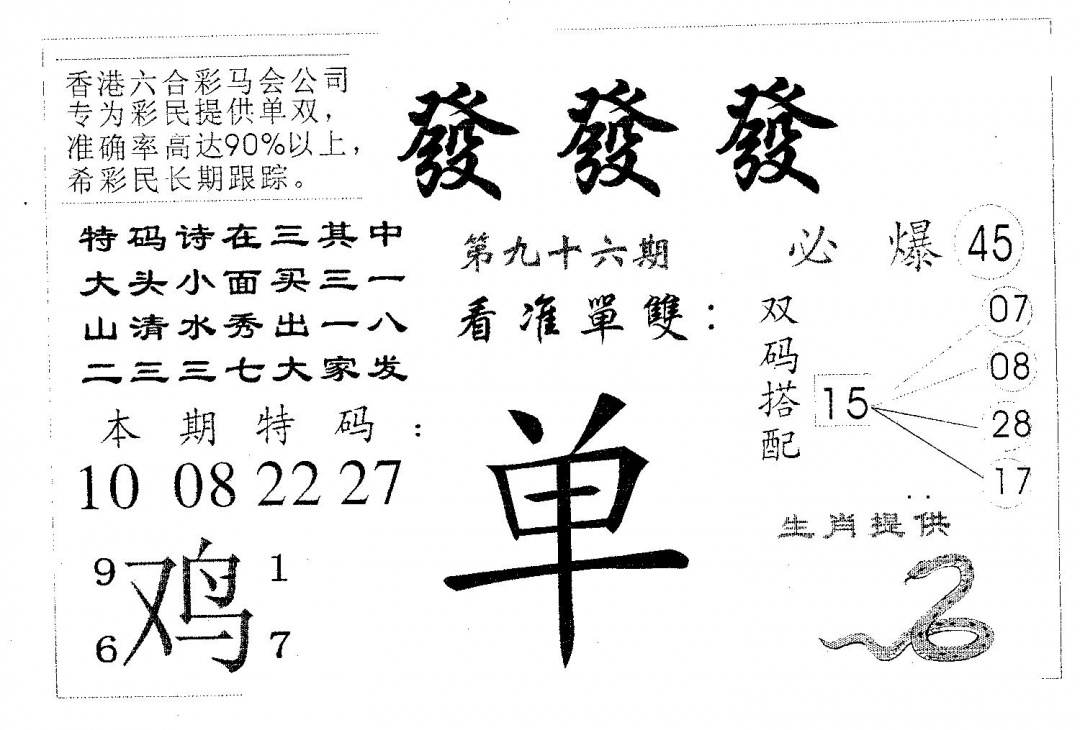 香港六合彩马会公司
专为彩民提供单双，
准确率高达90%以上，
希彩民长期跟踪。
發發發
特码诗在三其中
大头小面买三一
山清水秀出一八
二三三七大家发
第九十六期
看准單雙：
单
必爆45
双码搭配
15
07
08
28
17
本期特码：
10 08 22 27
9 1
鸡
6 7
生肖提供